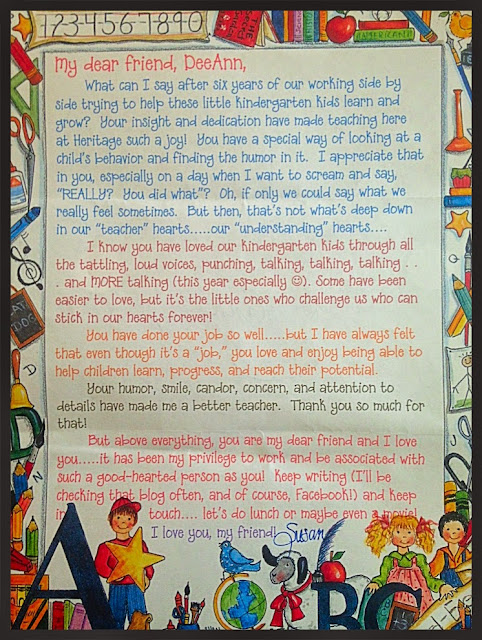 123-4-5-6-7890
My dear friend, DeeAnn,
What can I say after six years of our working side by
side trying to help these little kindergarten kids learn and
grow? Your insight and dedication have made teaching here
at Heritage such a joy! You have a special way of looking at a
child's behavior and finding the humor in it. I appreciate that
in you, especially on a day when I want to scream and say,
"REALLY? You did what"? Oh, if only we could say what we
really feel sometimes. But then, that's not what's deep down
in our "teacher" hearts.....our "understanding" hearts....
I know you have loved our kindergarten kids through all
the tattling, loud voices, punching, talking, talking, talking . .
. and MORE talking (this year especially ☺). Some have been
easier to love, but it's the little ones who challenge us who can
stick in our hearts forever!
You have done your job so well.....but I have always felt
that even though it's a "job," you love and enjoy being able to
help children learn, progress, and reach their potential.
Your humor, smile, candor, concern, and attention to
details have made me a better teacher. Thank you so much for
that!
But above everything, you are my dear friend and I love
you.....it has been my privilege to work and be associated with
such a good-hearted person as you! Keep writing (I'll be
checking that blog often, and of course, Facebook!) and keep
in touch.... let's do lunch or maybe even a movie!
I love you, my friend! Susan
A B C